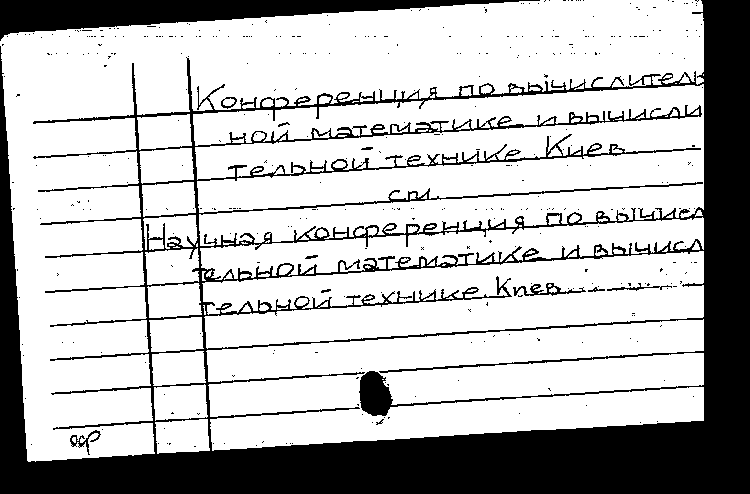 Конференция по вычислитель
ной математике и вычисли
тельной технике. Киев
см.
Научная конференция по вычисл
тельной математике и вычисл
тельной технике. Киев